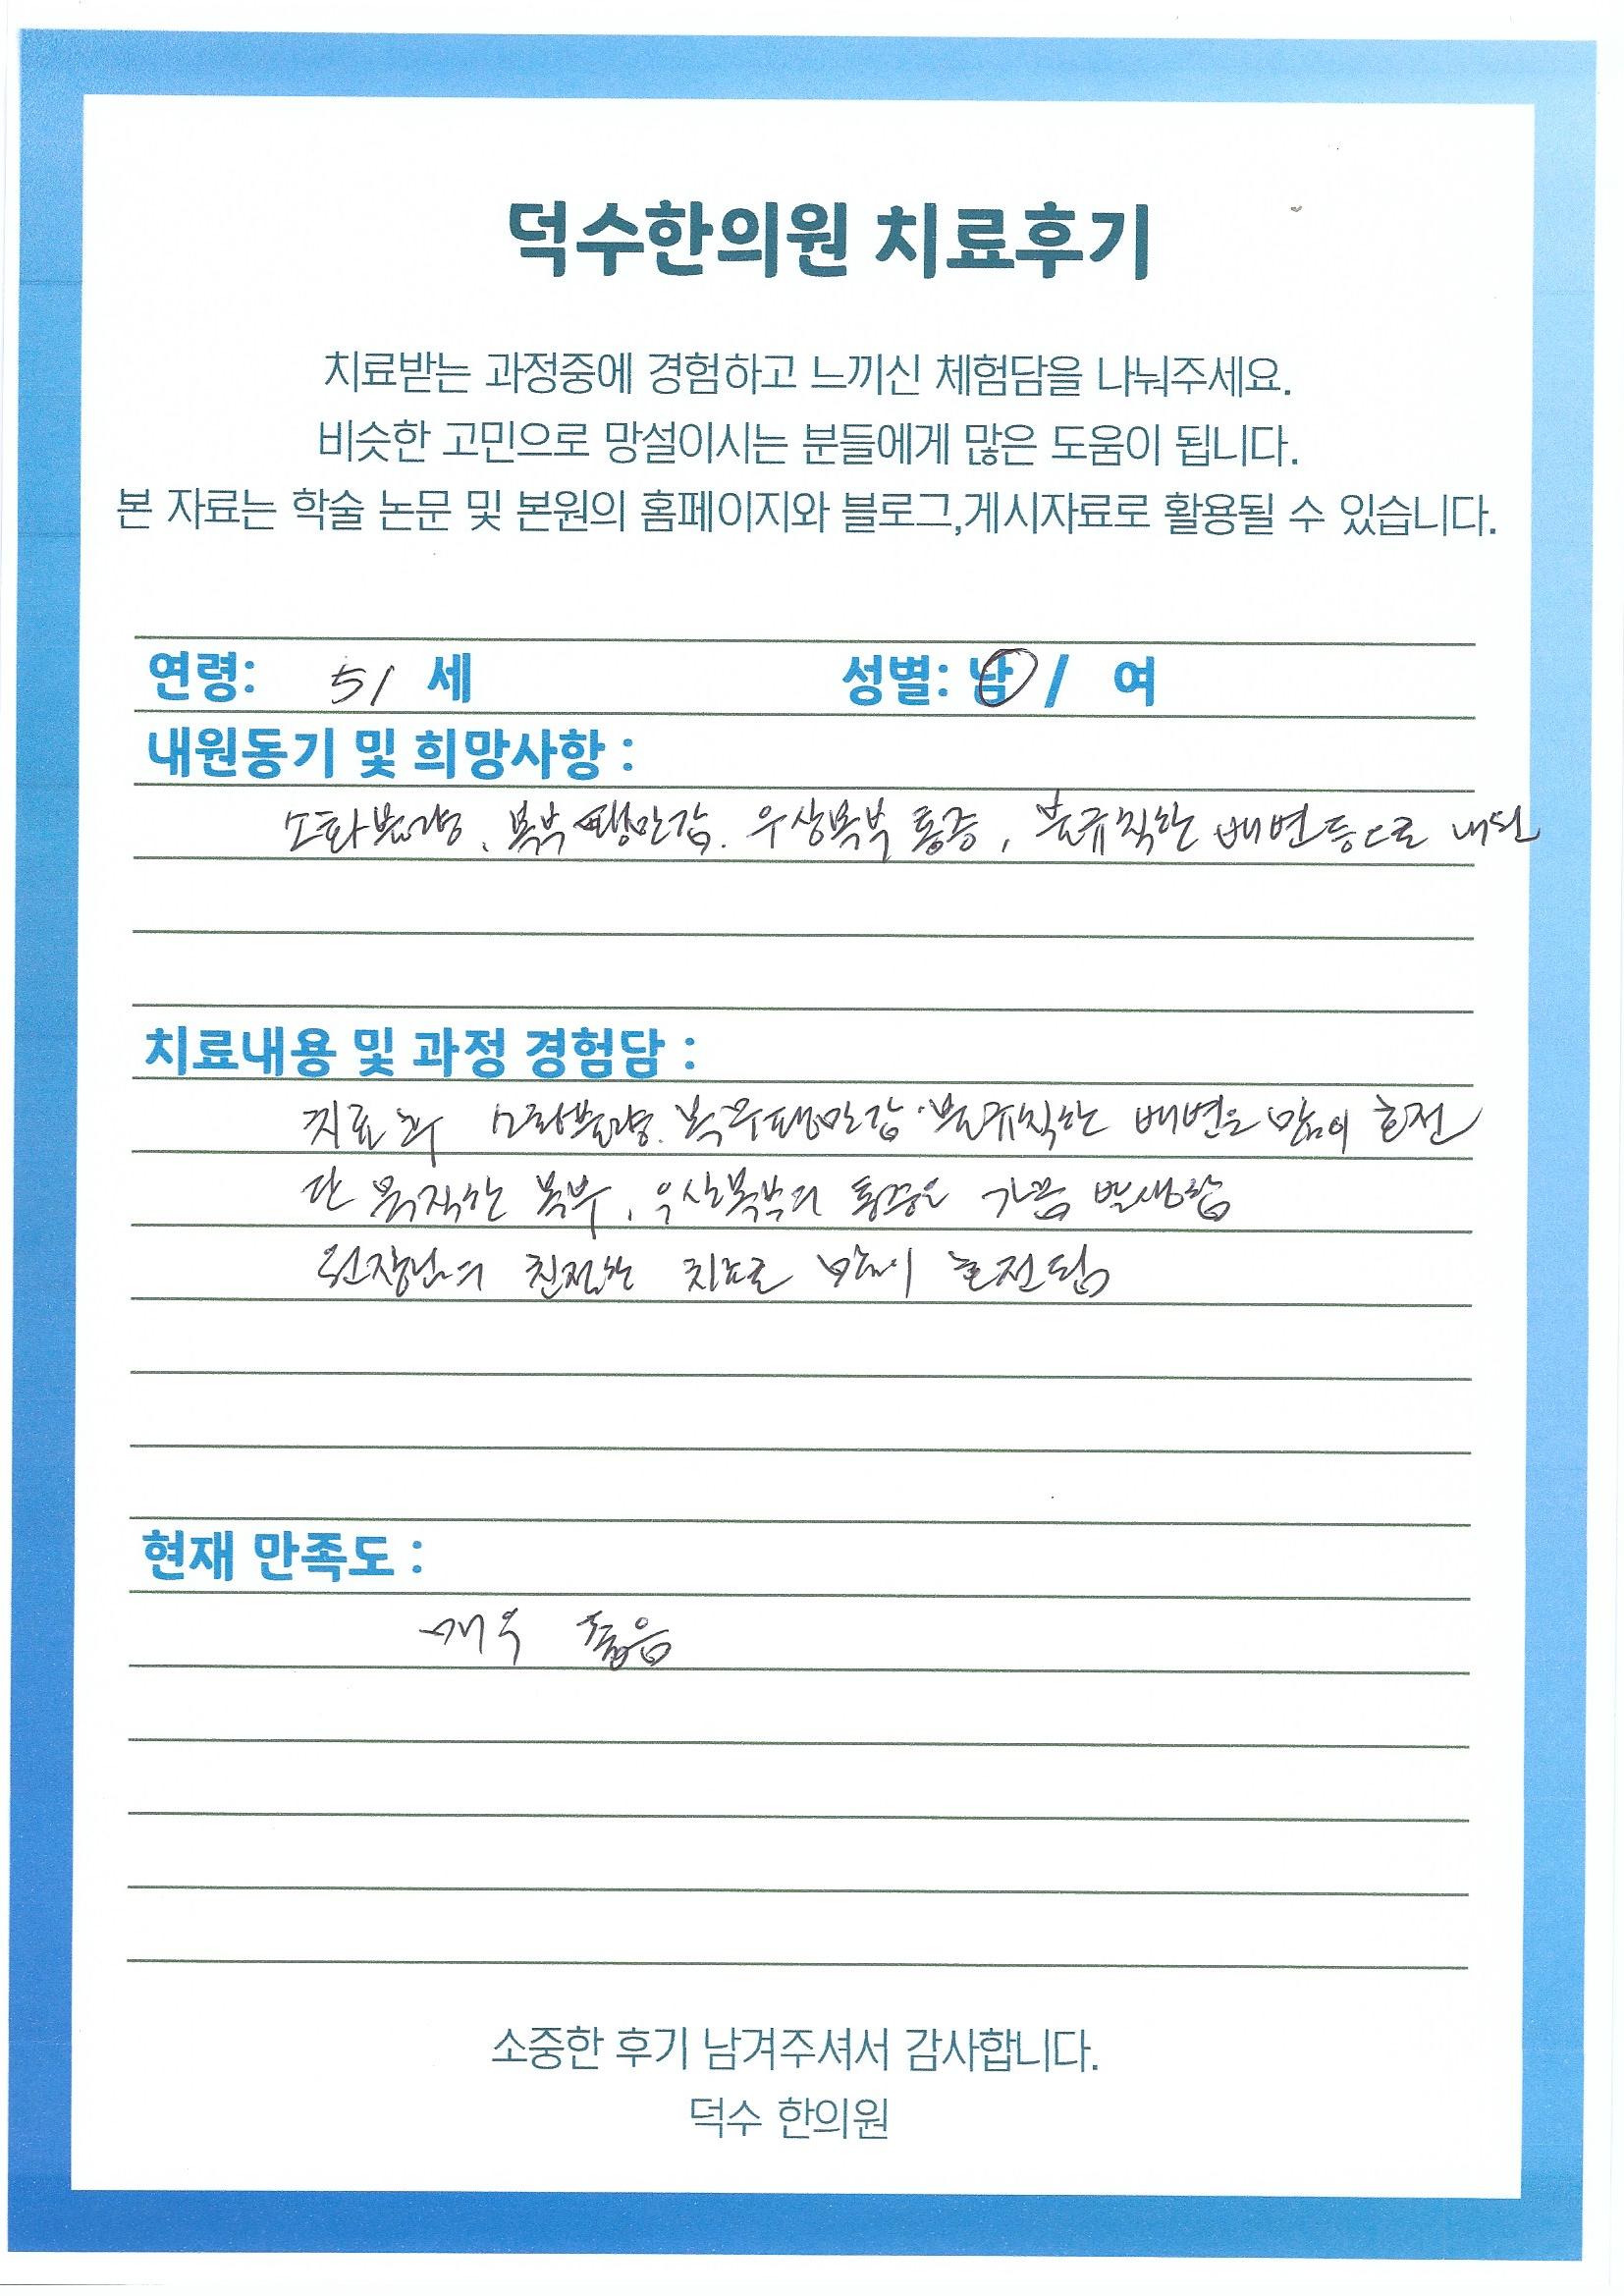 덕수한의원 치료후기
치료받는 과정중에 경험하고 느끼신 체험담을 나눠주세요.
비슷한 고민으로 망설이시는 분들에게 많은 도움이 됩니다.
본 자료는 학술 논문 및 본원의 홈페이지와 블로그,게시자료로 활용될 수 있습니다.
연령: 51 세 성별: 남 / 여
내원동기 및 희망사항 :
소화불량, 복부팽만감, 우상복부 통증, 불규칙한 배변등으로 내원
치료내용 및 과정 경험담 :
치료 후 소화불량, 복부팽만감, 불규칙한 배변은 많이 호전
단 복부, 우상복부의 통증은 가끔 발생함
원장님의 친절한 치료로 많이 호전됨
현재 만족도 :
매우 좋음
소중한 후기 남겨주셔서 감사합니다.
덕수 한의원